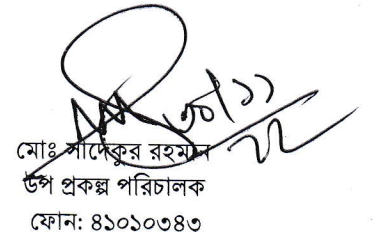 ৩০/১১
২২
মোঃ সাদেকুর রহমান
উপ প্রকল্প পরিচালক
ফোন: ৪১০১০৩৪৩